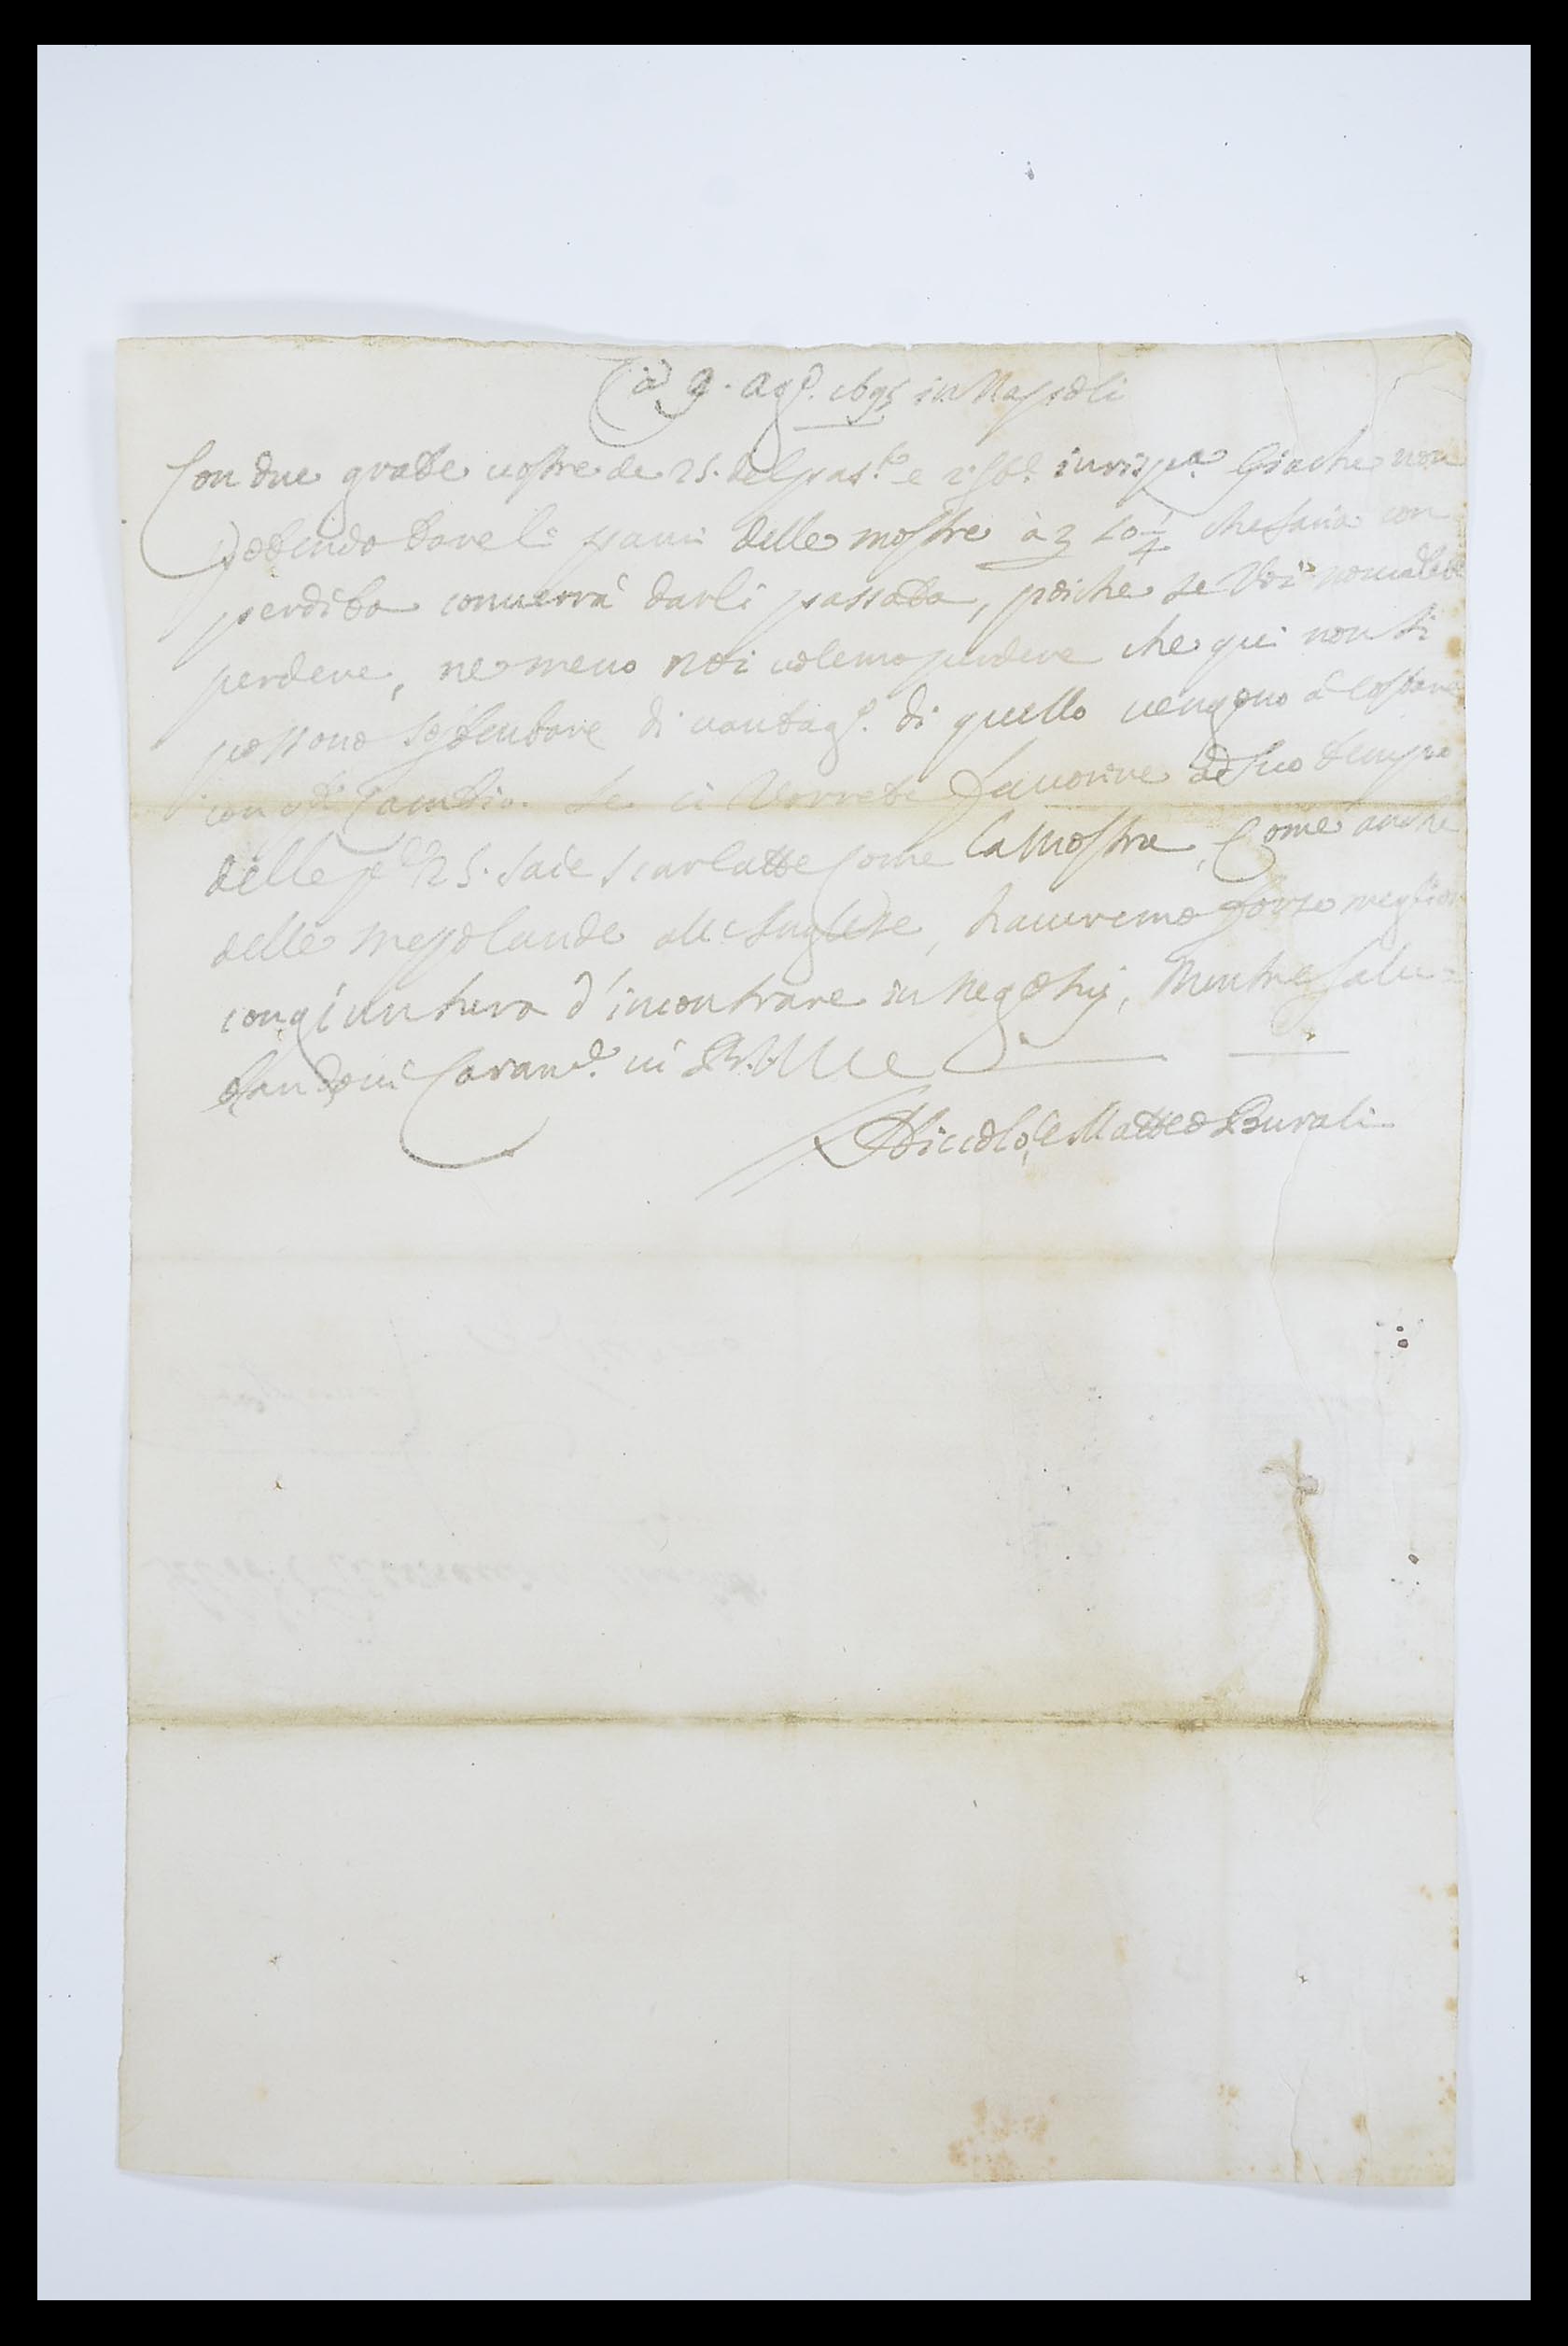 à 9. Ag.º 1695 in Napoli
Con due grate vostre de 25. del pas.to e in risp.a Giache non
potendo dare li panni delle mostre à 10 1/4 che saria con
perdita converrà darli passata, poiche se Voi non
perdere, ne meno noi volemo perdere che qui non si
possono di vantag.º di quello vengono à costare
con Cambio. Se ci Vorrete favorire ad suo tempo
delle 25. saie scarlatte come la Mostra, Come anche
delle all'Inglese, haveremo forse meglior
congiuntura d'incontrare in Negotij, Mentre salu=
tandovi
Niccolò, e Matteo Burali